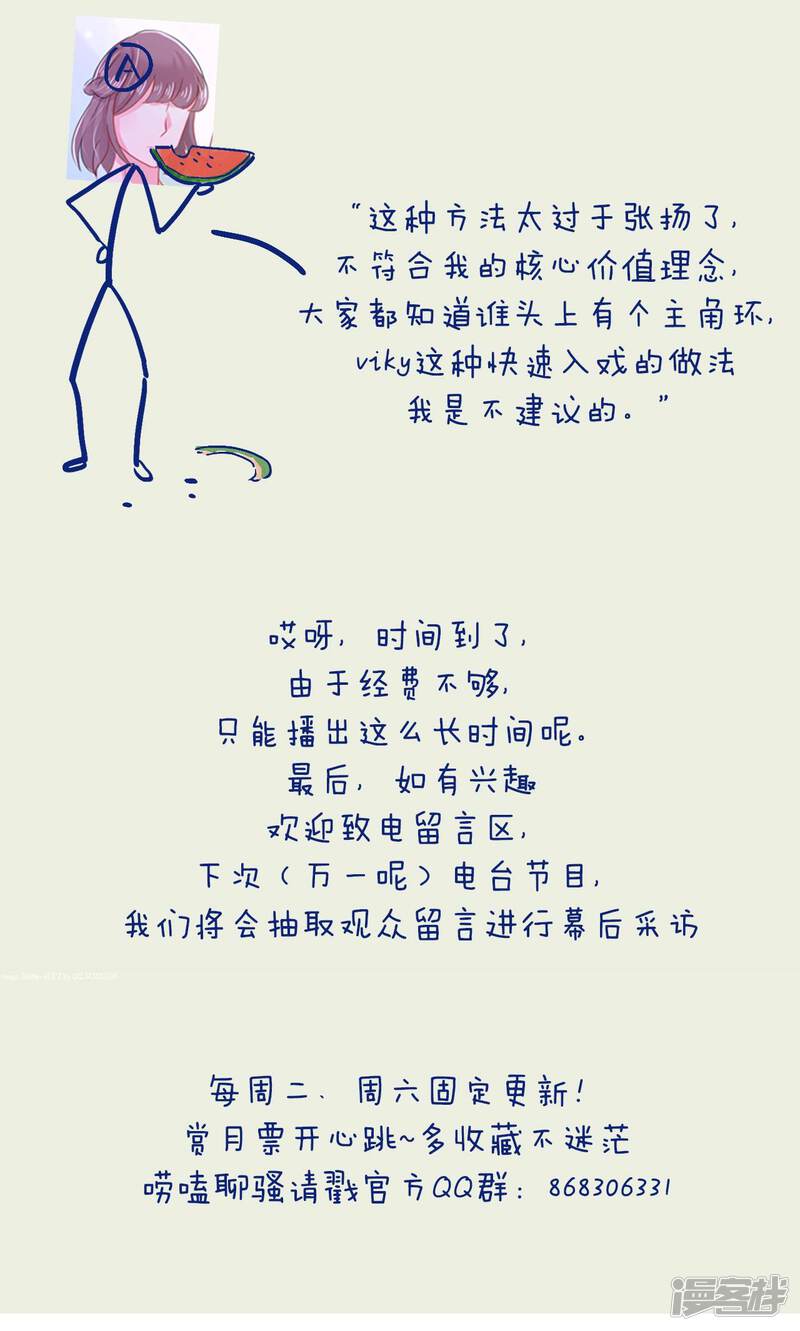 A
“这种方法太过于张扬了,
不符合我的核心价值理念,
大家都知道谁头上有个主角环,
viky这种快速入戏的做法
我是不建议的。”
哎呀,时间到了,
由于经费不够,
只能播出这么长时间呢。
最后,如有兴趣
欢迎致电留言区,
下次(万一呢)电台节目,
我们将会抽取观众留言进行幕后采访
每周二、周六固定更新!
赏月票开心跳~多收藏不迷茫
唠嗑聊骚请戳官方QQ群:868306331
漫客栈